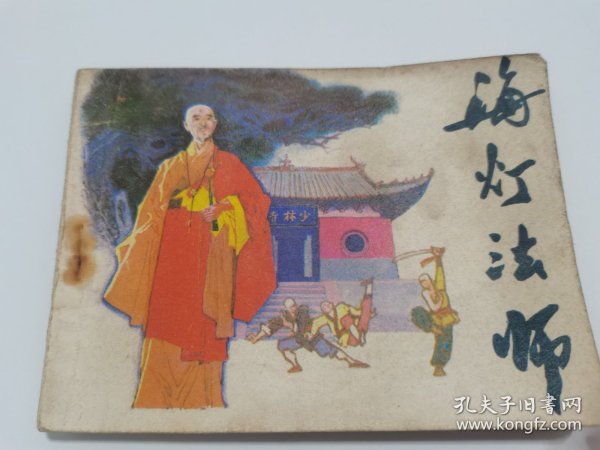 海灯法师
少林寺
孔夫子旧书网
www.kongfz.com